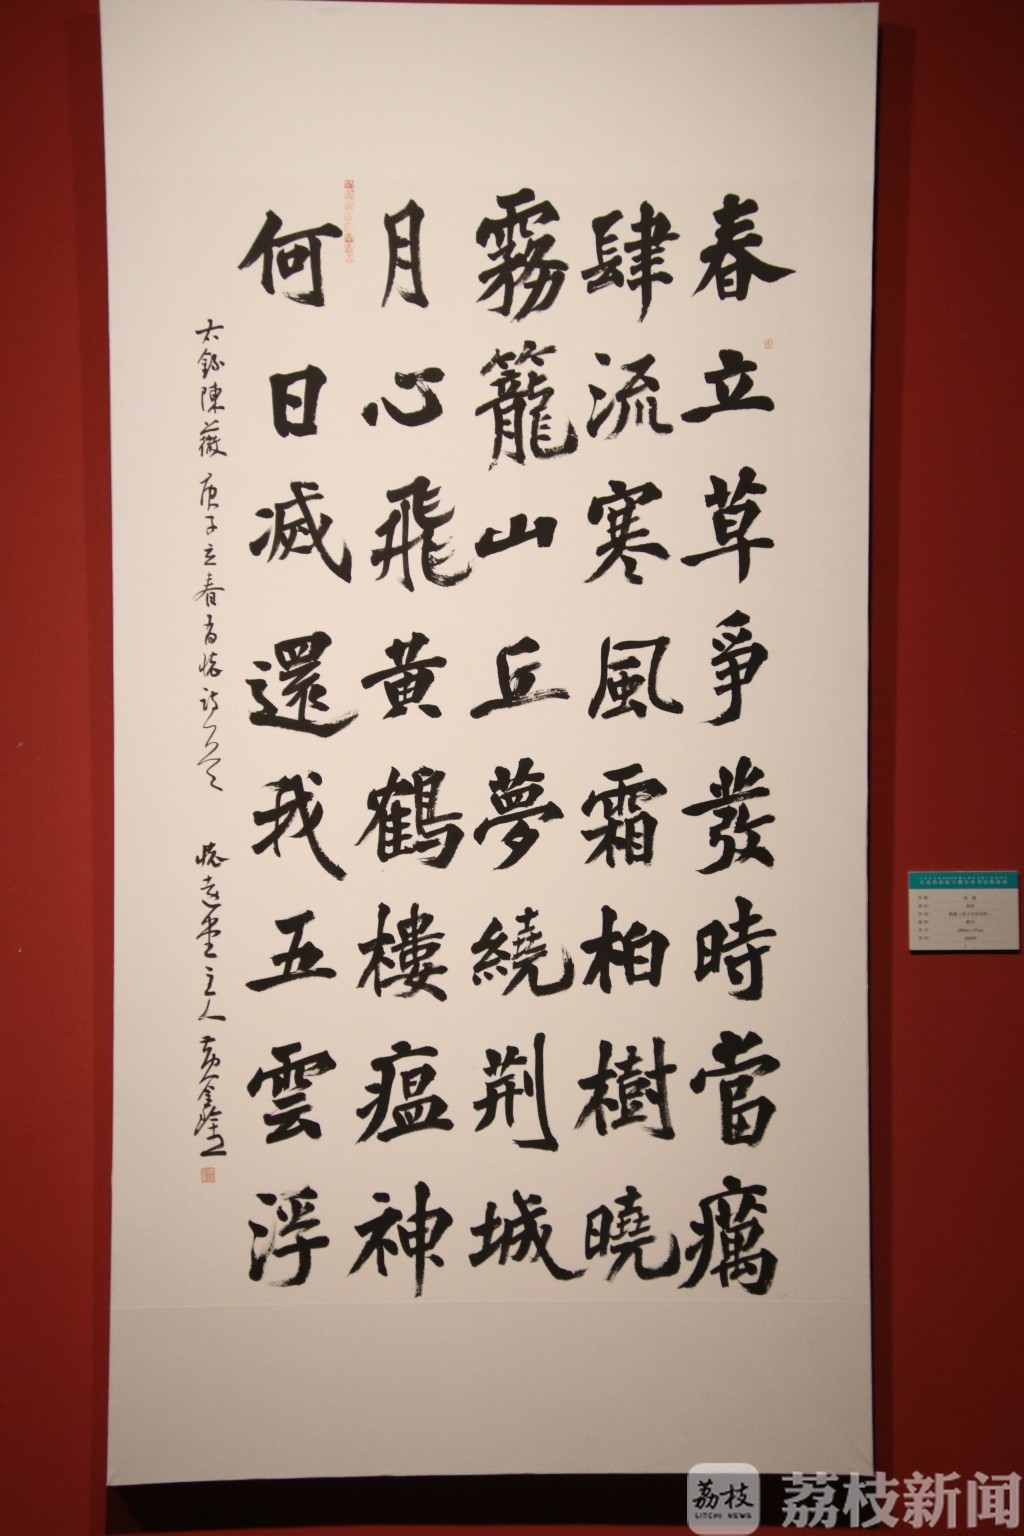 春立草爭發時當癘
肆流寒風霜柏樹曉
霧籠山丘夢繞荆城
月心飛黃鶴樓瘟神
何日滅還我五雲浮
右録陳薇庚子立春有懷詩一首
懷遠堂主人
荔枝
LITCHI NEWS
荔枝新闻